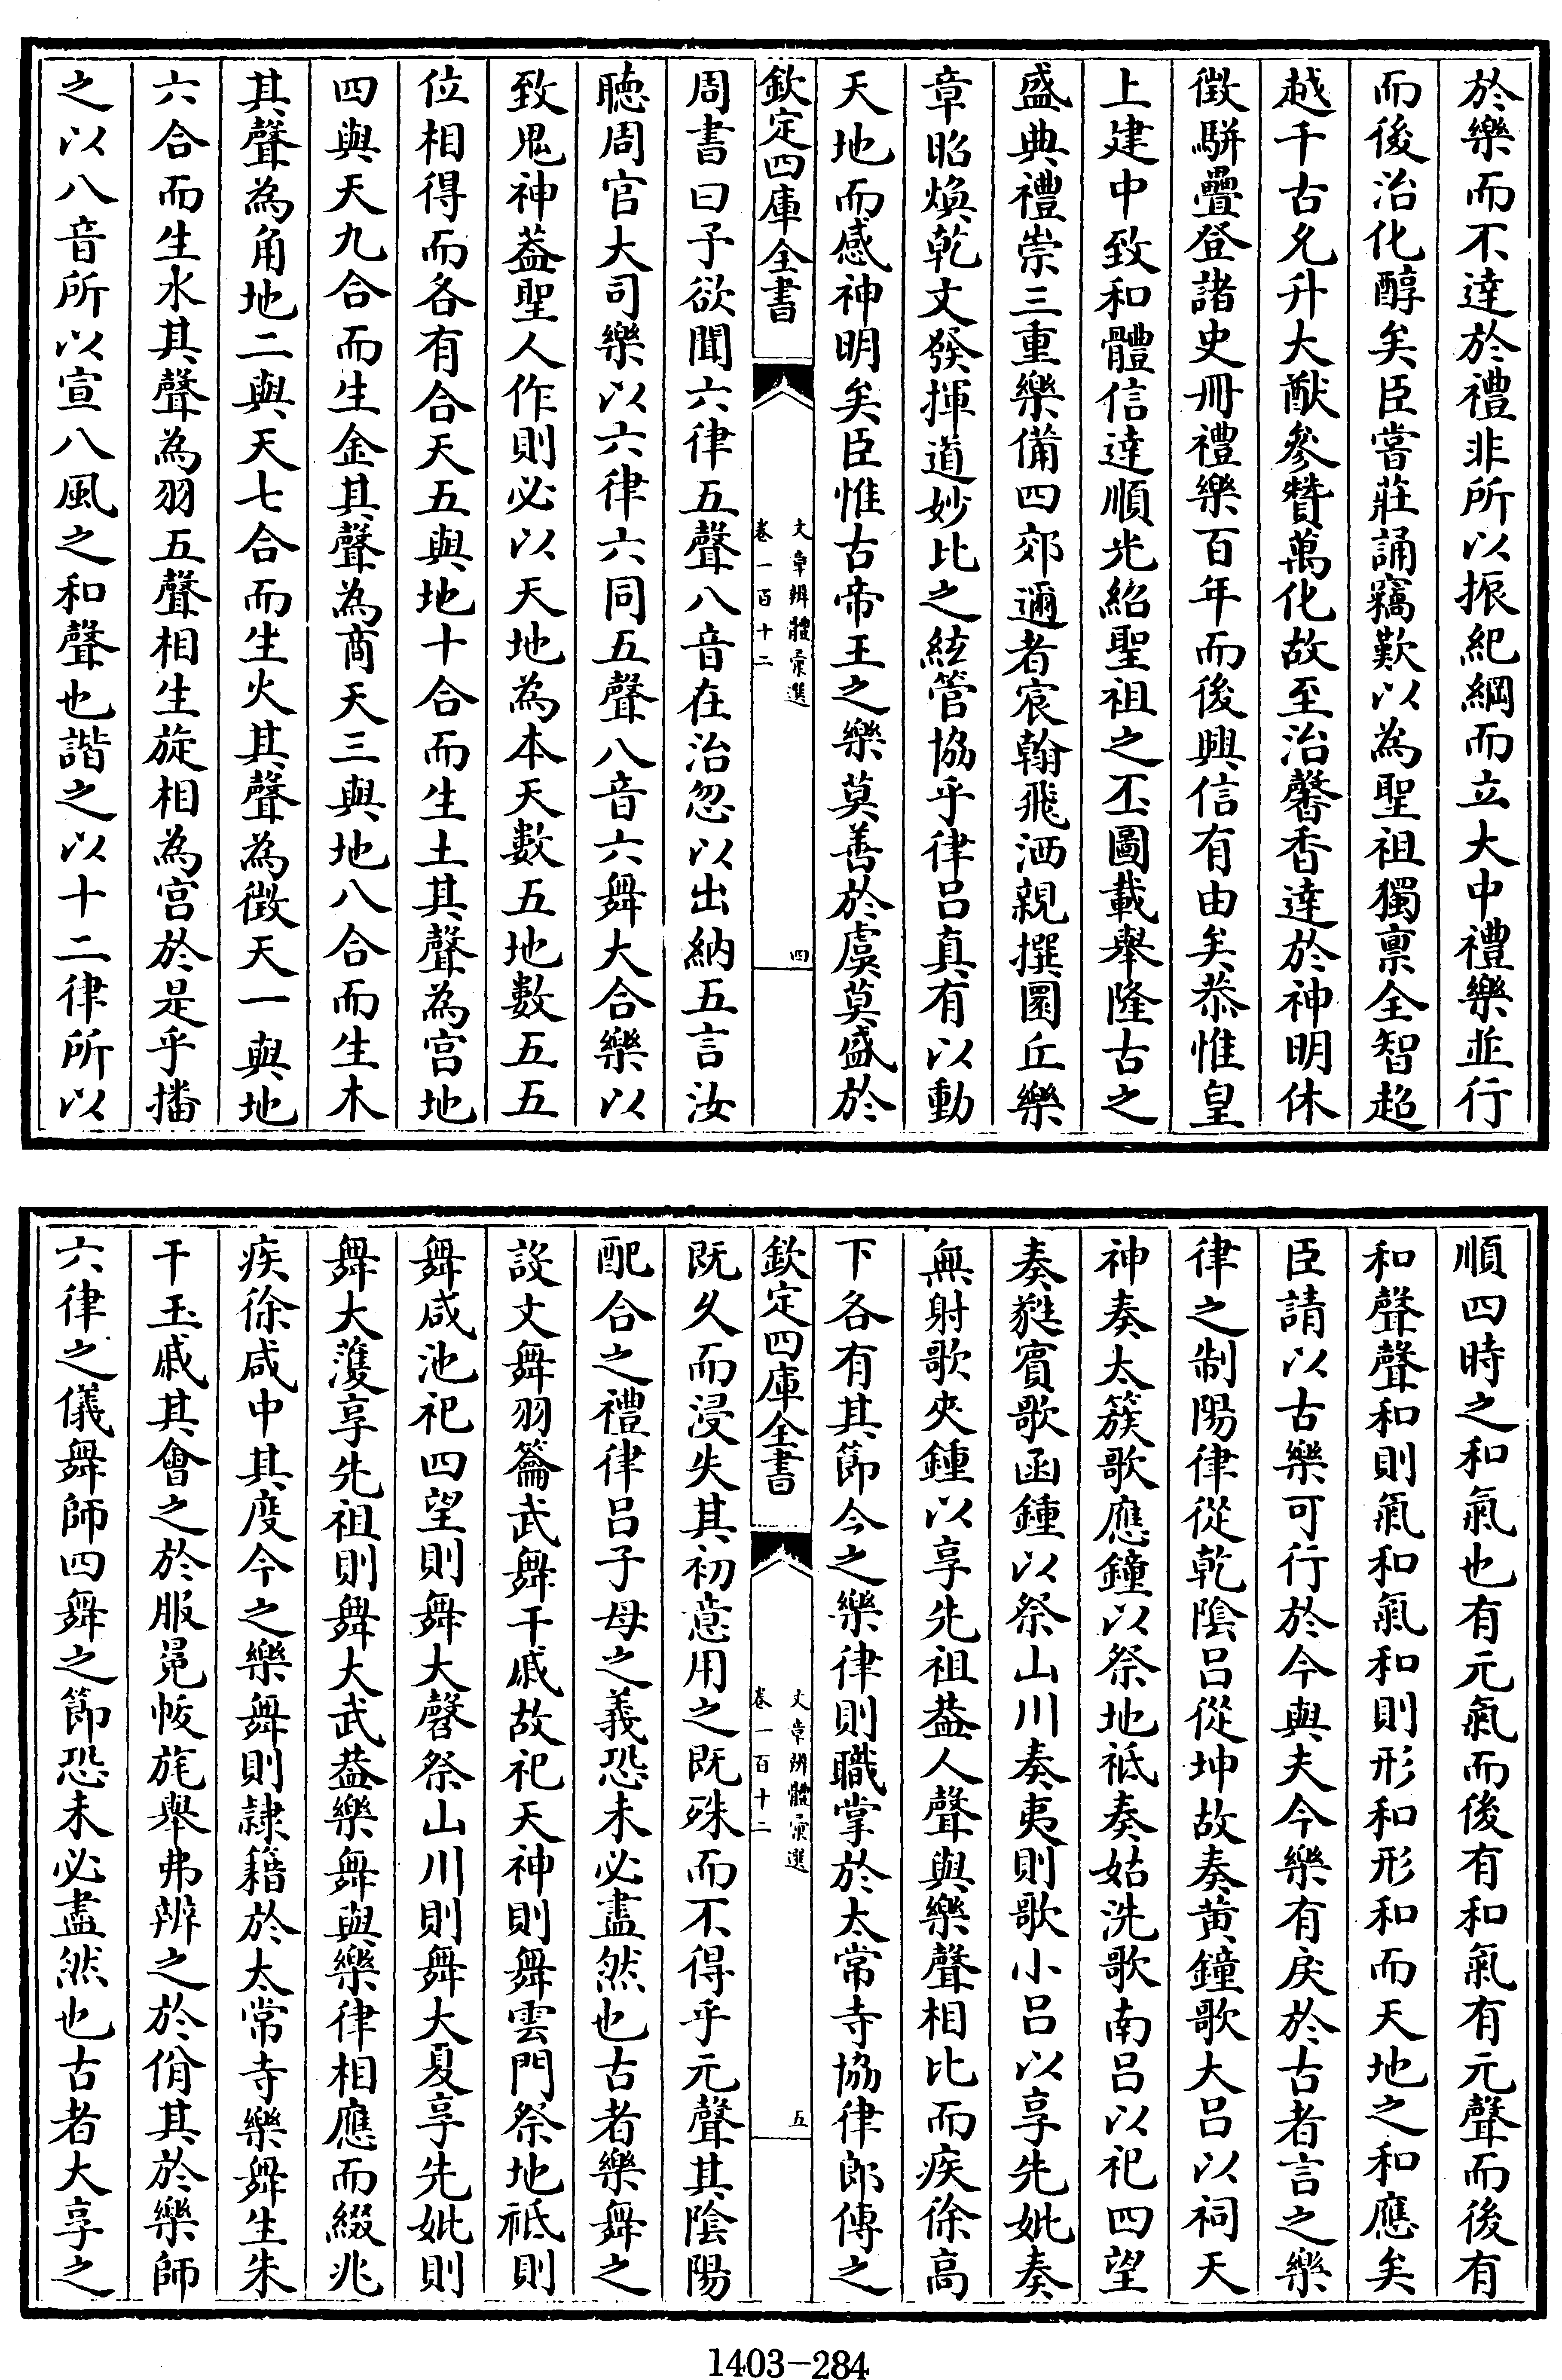 於樂而不達於禮非所以振紀綱而立大中禮樂並行
而後治化醇矣臣嘗莊誦竊歎以為聖祖獨禀全智超
越千古允升大猷參贊萬化故至治馨香達於神明休
徵駢疊登諸史冊禮樂百年而後興信有由矣恭惟皇
上建中致和體信達順光紹聖祖之丕圖載舉隆古之
盛典禮崇三重樂備四郊邇者宸翰飛洒親撰圜丘樂
章昭煥乾文發揮道妙比之絃管協乎律呂真有以動
天地而感神明矣臣惟古帝王之樂莫善於虞莫盛於
欽定四庫全書
文章辨體彙選
卷一百十二
四
周書曰予欲聞六律五聲八音在治忽以出納五言汝
聽周官大司樂以六律六同五聲八音六舞大合樂以
致鬼神蓋聖人作則必以天地為本天數五地數五五
位相得而各有合天五與地十合而生土其聲為宮地
四與天九合而生金其聲為商天三與地八合而生木
其聲為角地二與天七合而生火其聲為徵天一與地
六合而生水其聲為羽五聲相生旋相為宮於是乎播
之以八音所以宣八風之和聲也諧之以十二律所以
順四時之和氣也有元氣而後有和氣有元聲而後有
和聲聲和則氣和氣和則形和形和而天地之和應矣
臣請以古樂可行於今與夫今樂有戾於古者言之樂
律之制陽律從乾陰呂從坤故奏黃鐘歌大呂以祠天
神奏太簇歌應鐘以祭地祗奏姑洗歌南呂以祀四望
奏蕤賓歌函鍾以祭山川奏夷則歌小呂以享先妣奏
無射歌夾鍾以享先祖蓋人聲與樂聲相比而疾徐高
下各有其節今之樂律則職掌於太常寺協律郎傳之
欽定四庫全書
文章辨體彙選
卷一百十二
五
既久而浸失其初意用之既殊而不得乎元聲其陰陽
配合之禮律呂子母之義恐未必盡然也古者樂舞之
設文舞羽籥武舞干戚故祀天神則舞雲門祭地祗則
舞咸池祀四望則舞大磬祭山川則舞大夏享先妣則
舞大濩享先祖則舞大武蓋樂舞與樂律相應而綴兆
疾徐咸中其度今之樂舞則隷籍於太常寺樂舞生朱
干玉戚其會之於服冕帗旄舉弗辨之於佾其於樂師
六律之儀舞師四舞之節恐未必盡然也古者大享之
1403-284